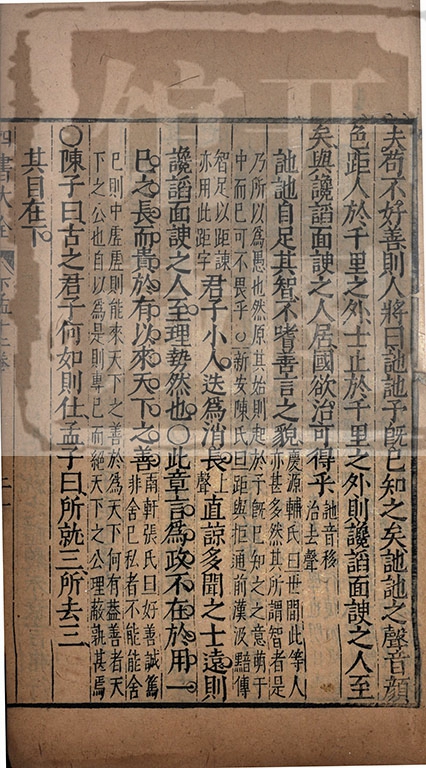 夫苟不好善則人將曰訑訑予旣已知之矣訑訑之聲音顔
色距人於千里之外士止於千里之外則讒諂面諛之人至
矣與讒諂面諛之人居國欲治可得乎訑音移治去聲
訑訑自足其智不嗜善言之貌慶源輔氏曰世間此等人亦甚多然其所謂智者是
乃所以爲愚也然原其始則起於予旣已知之之意萌于
中而已可不畏乎○新安陳氏曰距與拒通前漢汲黯傳
智足以距諫亦用此距字君子小人迭爲消長上聲直諒多聞之士遠則
讒諂面諛之人至理勢然也○此章言爲政不在於用一
已之長而貴於有以來天下之善南軒張氏曰好善誠篤非舍已私者不能能舍
已則中虛虛則能來天下之善於爲天下何有蓋善者天
下之公也自以爲是則專已而絕天下之公理蔽孰甚焉
○陳子曰古之君子何如則仕孟子曰所就三所去三
其目在下
四書大全 下孟十二卷